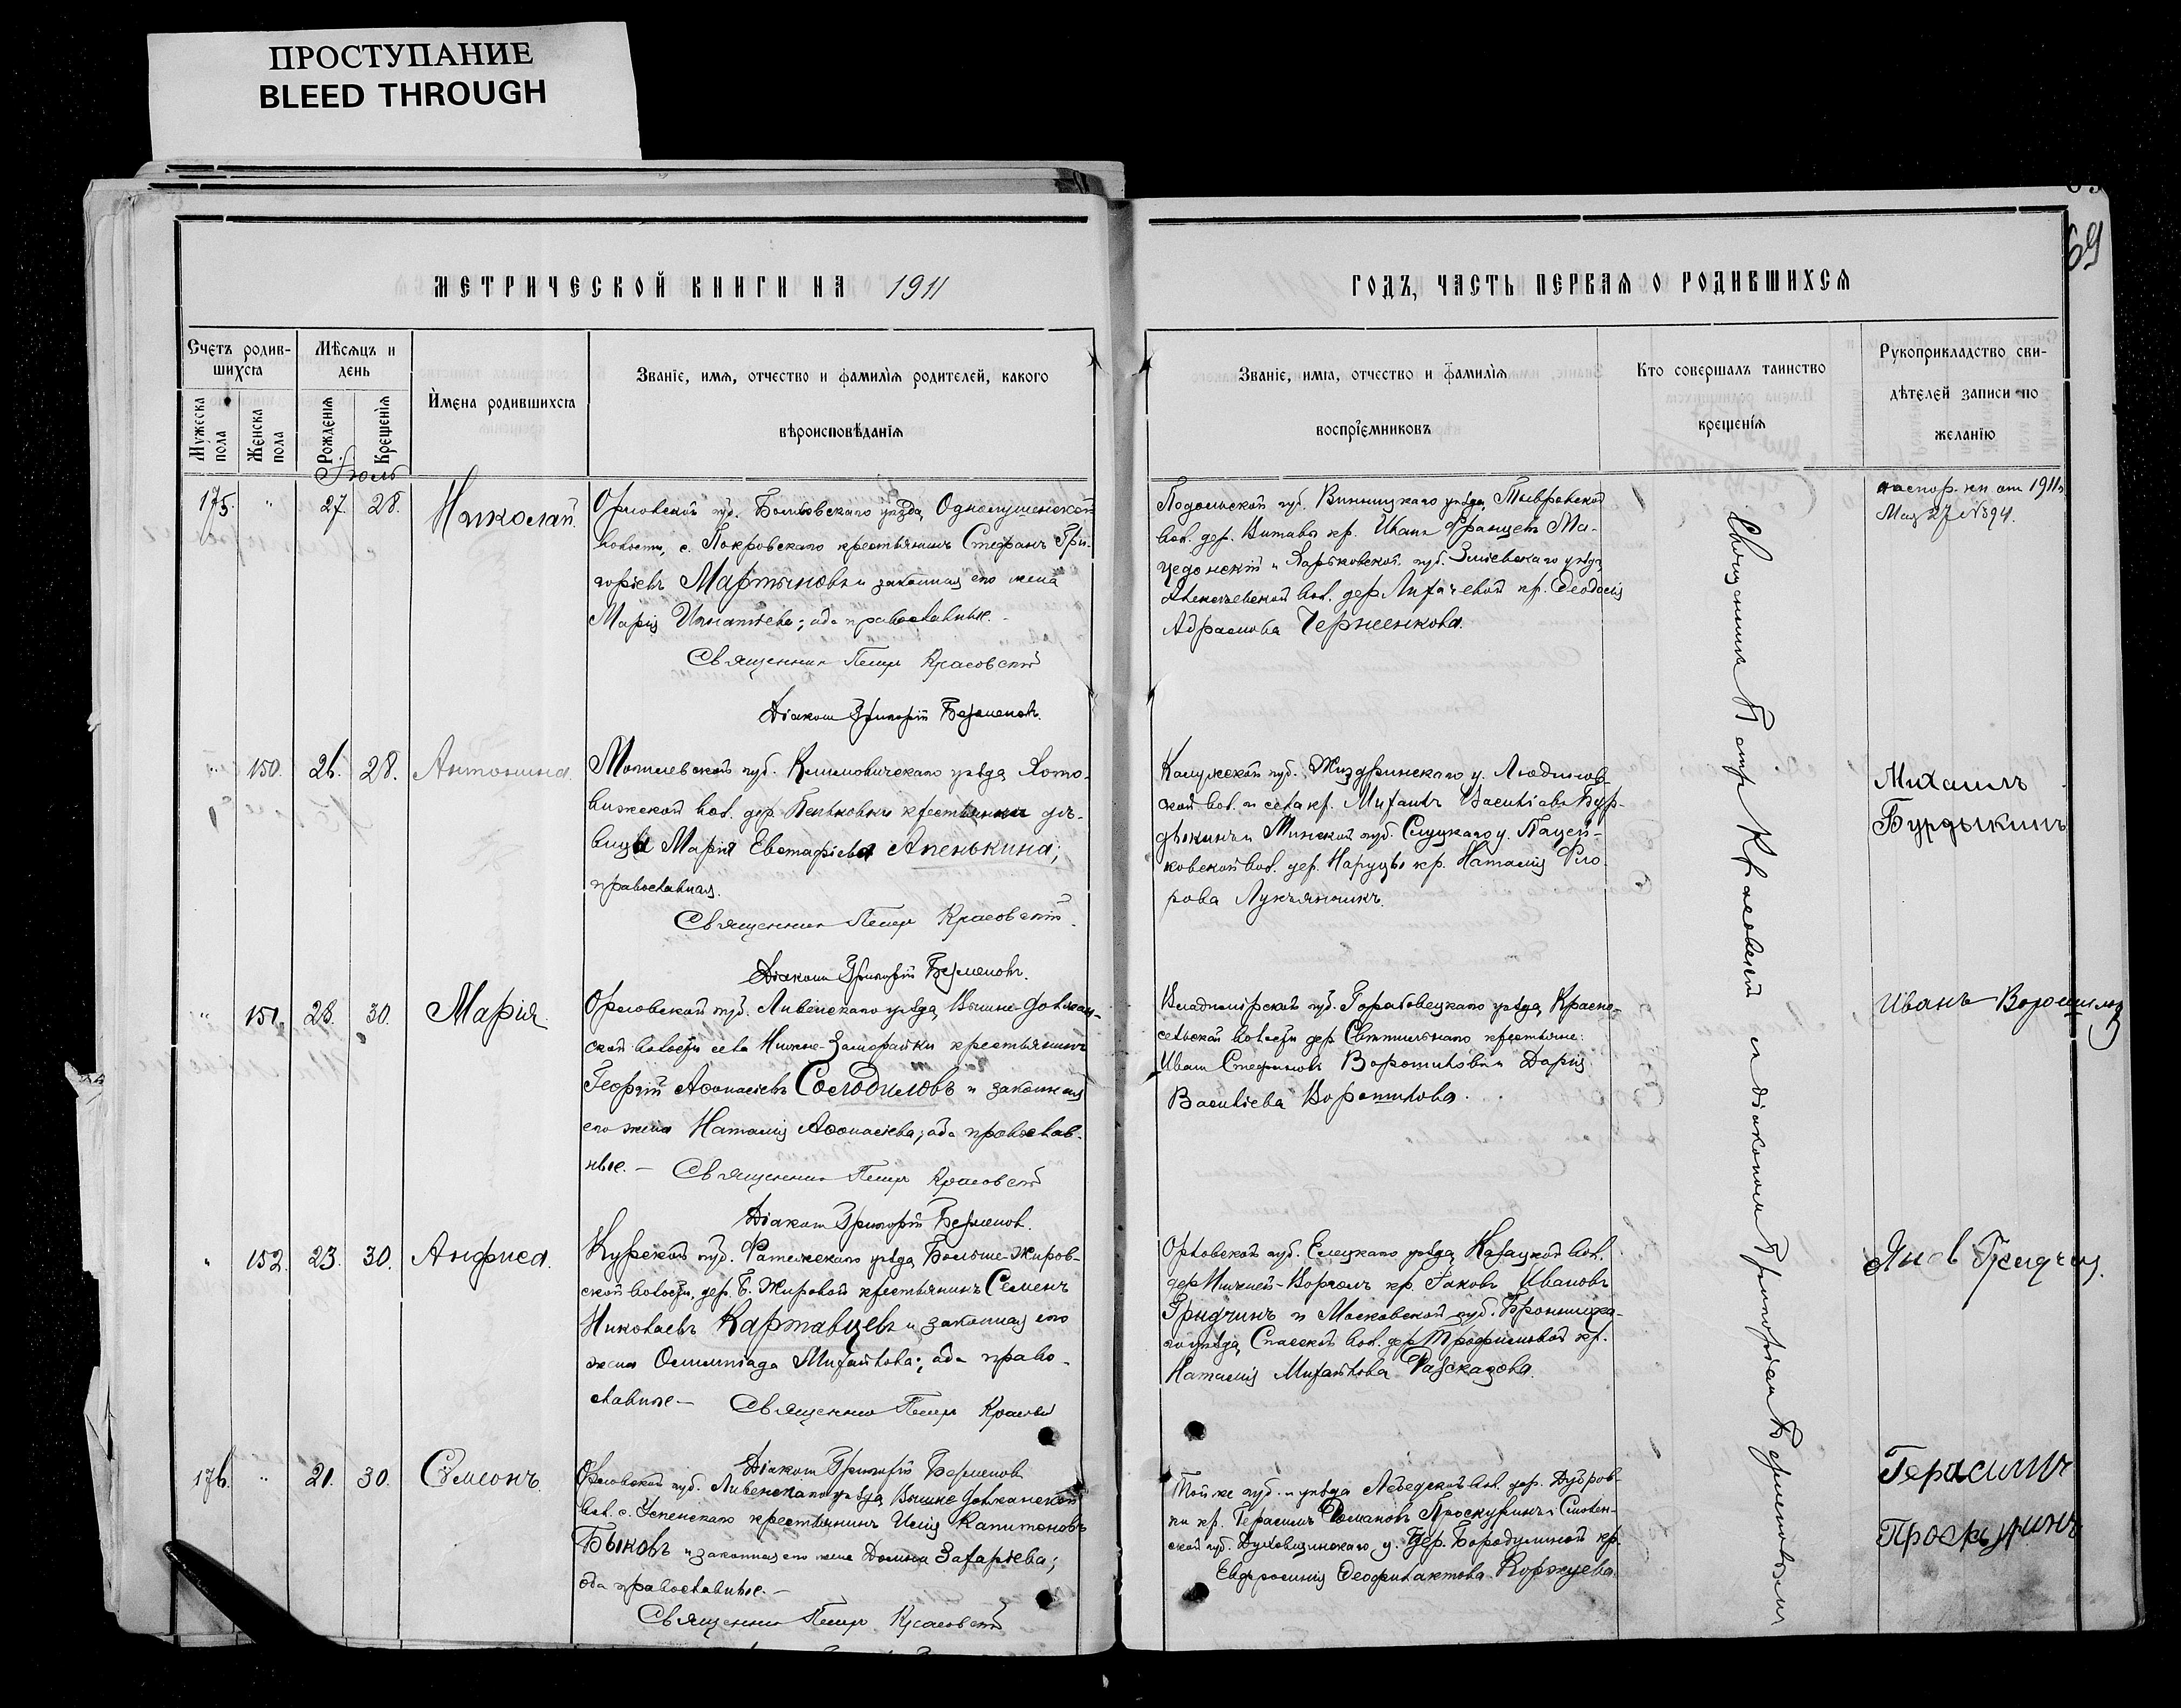 ПРОСТУПАНИЕ
BLEED THROUGH
69
МЕТРИЧЕСКОЙ КНИГИ НА 1911
ГОДЪ, ЧАСТЬ ПЕРВАЯ О РОДИВШИХСЯ
Счетъ родив-
шихся
Мужеска пола
Женска пола
Мѣсяцъ и
день
Рожденія
Крещенія
Имена родившихся
Званіе, имя, отчество и фамилія родителей, какого
вѣроисповѣданія
Званіе, имя, отчество и фамилія
воспріемниковъ
Кто совершалъ таинство
крещенія
Рукоприкладство сви-
дѣтелей записи по
желанію
Іюль
175. " 27. 28. Николай.
Орловской губ. Болховскаго уѣзда,
волости, с. Покровскаго крестьянинъ Стефанъ Гри-
горіевъ Мартыновъ и законная его жена
Марія Игнатіева; оба православные.
Священникъ Петръ Красовскій
Діаконъ Григорій
Подольской губ. Винницкаго уѣзда, Тывровской
вол. дер. Витавы кр. Иванъ Францевъ Ма-
цедонскій и Харьковской губ. Зміевскаго уѣзда,
Алексѣевской вол. дер. Лихачевой кр. Ѳеодосія
Абрамова Черненкова.
от 1911 г.
Мая 27 № 394.
Священникъ Петръ Красовскій съ діакономъ Григоріемъ
" 150. 26. 28. Антонина.
Могилевской губ. Климовичскаго уѣзда, Хото-
вижской вол. дер. Пеньковки крестьянки дѣ-
вицы Марія Евстафіева Апенькина;
православная.
Священникъ Петръ Красовскій.
Діаконъ Григорій
Калужской губ. Жиздринскаго у. Людинов-
ской вол. и села кр. Михаилъ Васильевъ Бур-
дыкинъ и Минской губ. Слуцкаго у. Пацей-
ковской вол. дер. Наруцы кр. Наталія Фло-
рова Лукъянчикъ.
Михаилъ
Бурдыкинъ
" 151. 28. 30. Марія.
Орловской губ. Ливенскаго уѣзда, Вышне-Должан-
ской волости села Нижне- крестьянинъ
Георгій Аѳонасіевъ Солодиловъ и законная
его жена Наталія Аѳонасіева; оба православ-
ные. — Священникъ Петръ Красовскій
Діаконъ Григорій
Владимірской губ. Гороховецкаго уѣзда, Красно-
сельской волости дер. крестьяне:
Иванъ Стефановъ Ворошиловъ и Дарія
Васильева Ворошилова.
Иванъ Ворошиловъ
" 152. 23. 30. Анфиса.
Курской губ. Фатежскаго уѣзда, Больше-Жиров-
ской волости, дер. Б. Жировой крестьянинъ Семенъ
Николаевъ Картавцевъ и законная его
жена Олимпіада Михайлова; оба право-
славные — Священникъ Петръ
Діаконъ Григорій
Орловской губ. Елецкаго уѣзда, Казацкой вол.
дер. Нижней-Воргол кр. Іаковъ Ивановъ
Гридчинъ и Московской губ. Бронницка-
го уѣзда, Спасской вол. дер. Трофимовой кр.
Наталія Михайлова Разсказова.
176. " 21. 30. Симеонъ.
Орловской губ. Ливенскаго уѣзда, Вышне Должанской
вол. с. Успенскаго крестьянинъ Илія Капитоновъ
Быковъ и законная его жена Домна Захаріева;
оба православные. —
Священникъ Петръ Красовскій
Той же губ. и уѣзда Лебедской вол. дер. Дубров-
ки кр. Герасимъ Романовъ Проскуринъ и Смолен-
ской губ. Духовщинскаго у. дер. Бородулиной кр.
Евфросинія Ѳеофилактова Коржуева.
Герасимъ
Проскуринъ